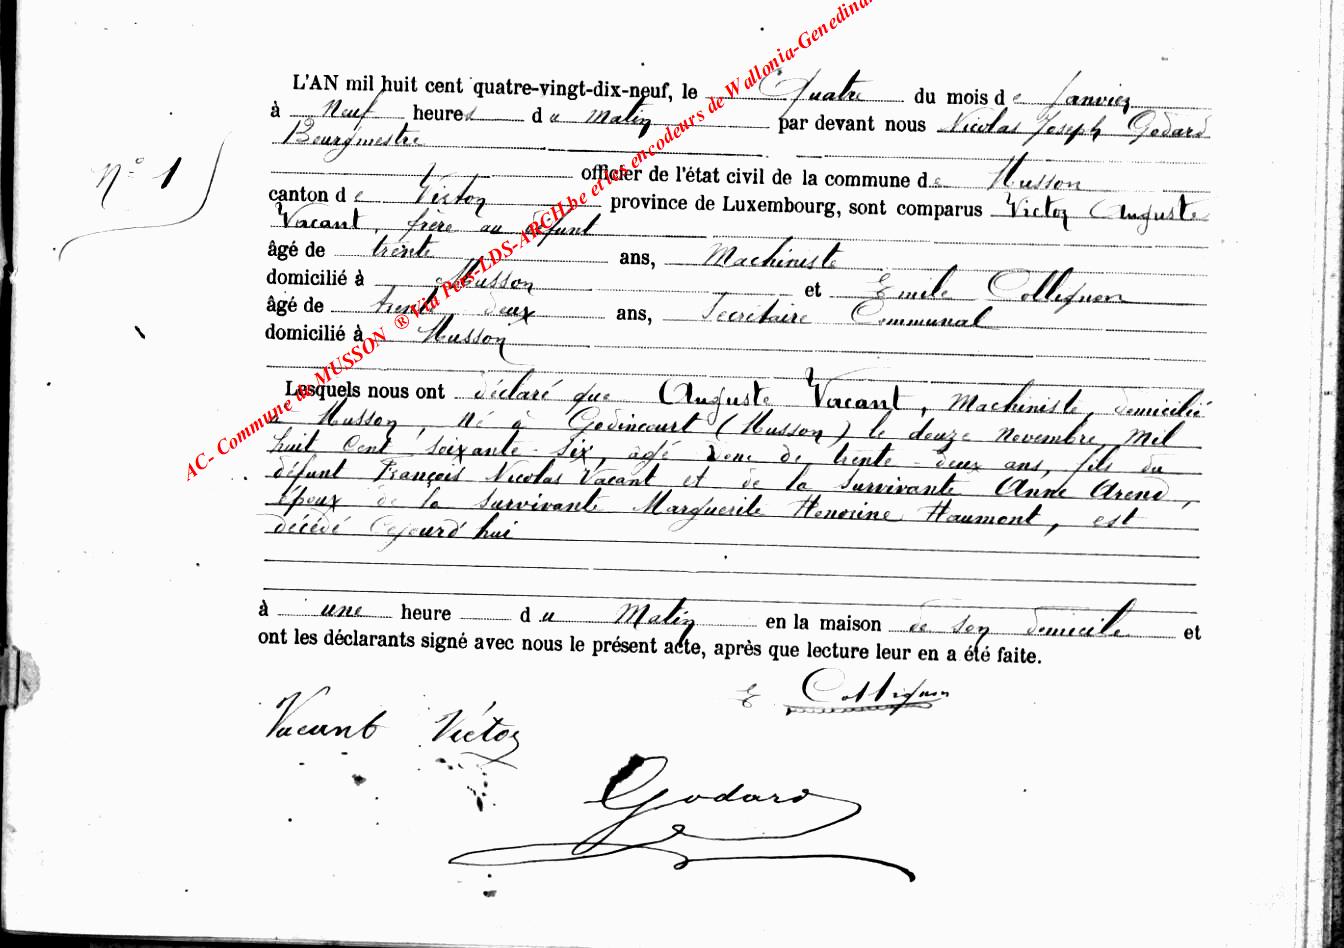 L'AN mil huit cent quatre-vingt-dix-neuf, le Quatre du mois de Janvier
à Neuf heures du matin par devant nous Nicolas Joseph Godard
Bourgmestre
officier de l'état civil de la commune de Musson
N° 1
canton de Virton province de Luxembourg, sont comparus Victor Auguste
Vacant, frère au défunt
âgé de trente ans, Machiniste
domicilié à Musson et Emile Collignon
âgé de trente deux ans, Secrétaire Communal
domicilié à Musson
Lesquels nous ont déclaré que Auguste Vacant, Machiniste, domicilié
à Musson, né à Godincourt (Musson) le douze Novembre Mil
huit Cent soixante-six, âgé donc de trente-deux ans, fils du
défunt François Nicolas Vacant et de la survivante Anne Arend,
époux de la survivante Marguerite Honorine Haumont, est
décédé cejourd'hui
à une heure du Matin en la maison de son domicile et
ont les déclarants signé avec nous le présent acte, après que lecture leur en a été faite.
E Collignon
Vacant Victor
Godard
AC- Commune de MUSSON ® Via Pers-LDS-ARCH.be et les encodeurs de Wallonia-Genedinan